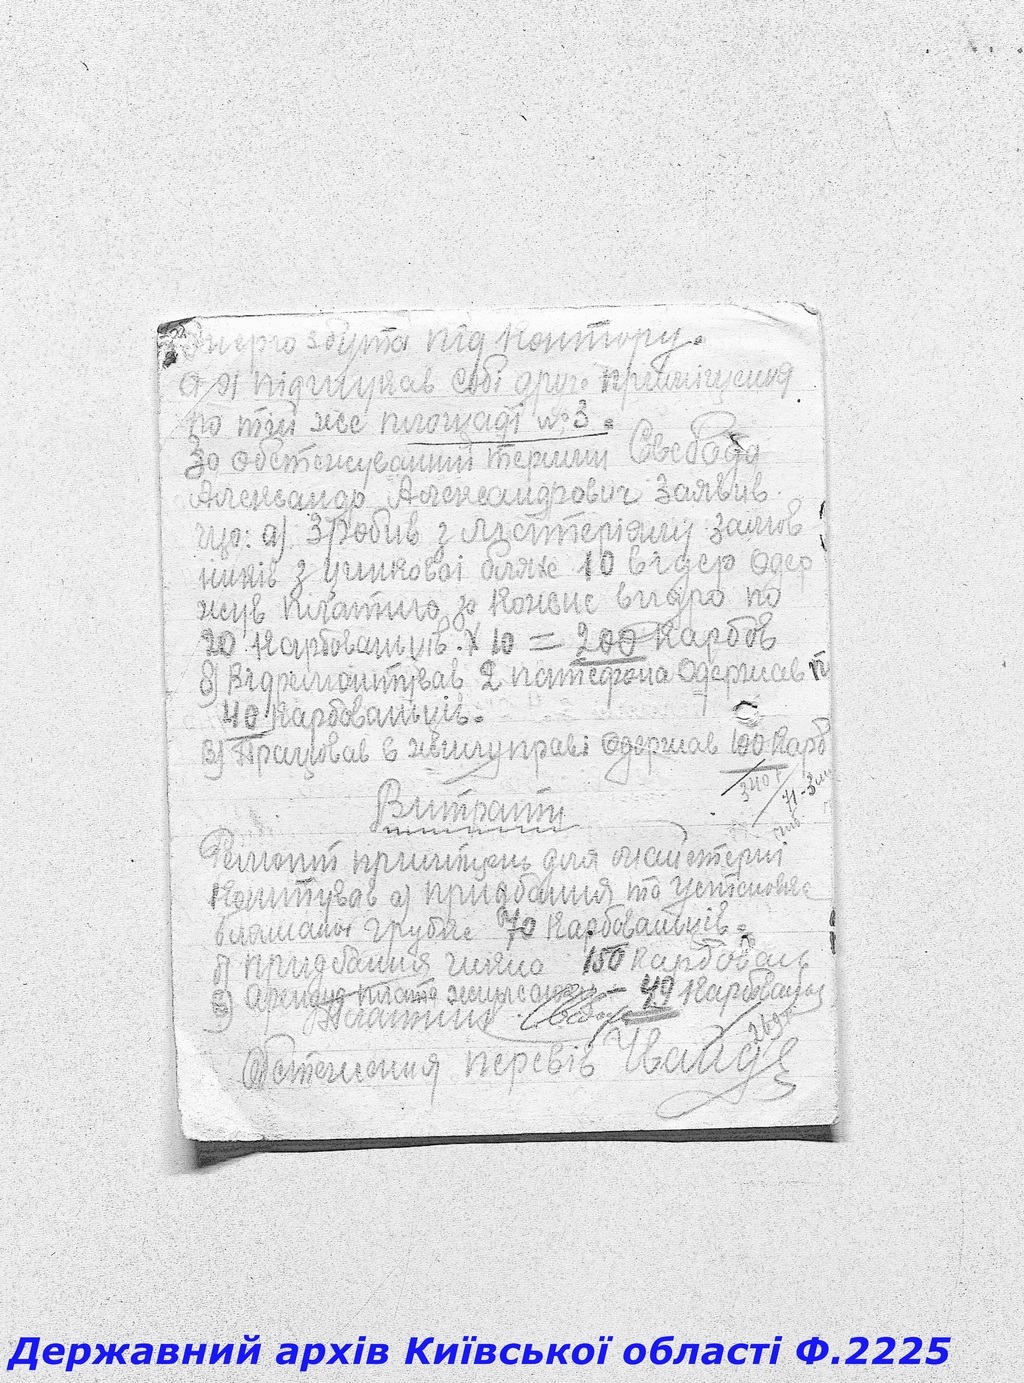 Энергозбута під Контору.
а я підшукав собі друге приміщення
по тій же площаді № 3.
За обстежуваний термин Свобода
Александр Александрович заявив
що: а) Зробив з матеріялу замов
ників з цинковоі бляхе 10 відер Одер
жув платню за кожне видро по
20 Карбованців. X 10 = 200 Карбов
б) Відремонтував 2 патефона Одержав
40 Карбованців.
в) Працював в жилуправі Одержав 100 Карб
340
71-3
Витрати
Ремонт приміщень для майстерні
Коштував а) придбання та установка
грубке 70 Карбованців.
б) придбання 150 Карбовань
в) Арендна плата - 49 Карбованц
269
Обстеження перевів
Державний архів Київської області Ф.2225